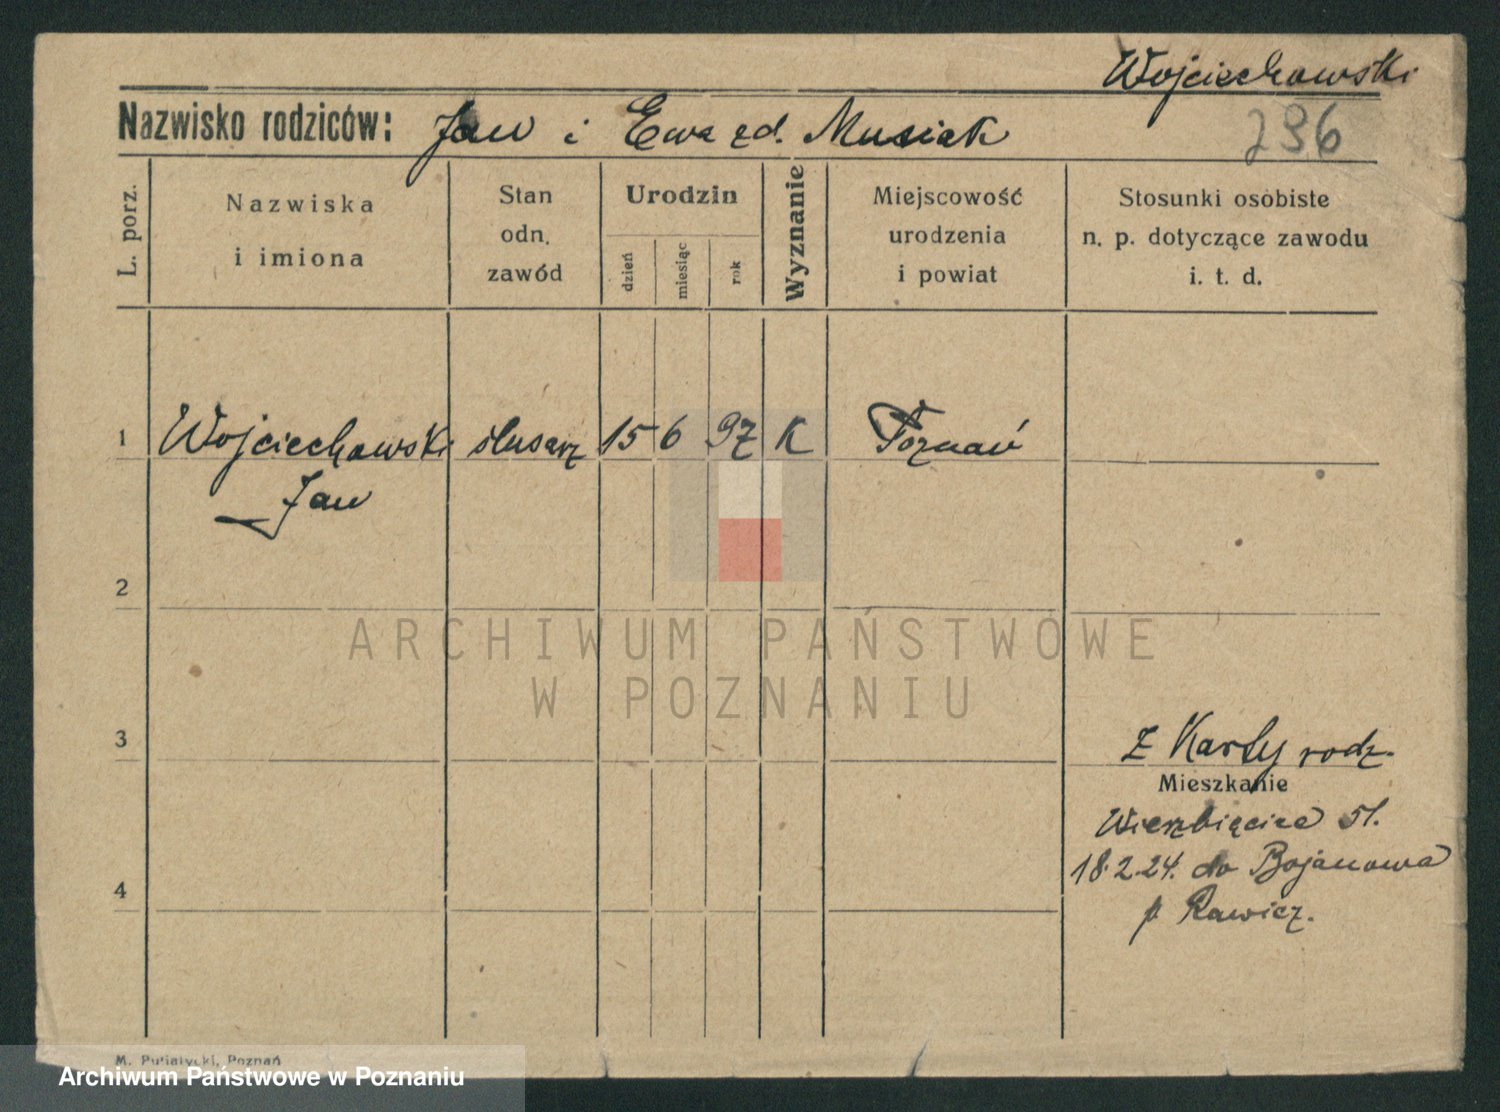 Wojciechowski
Nazwisko rodziców: Jan i Ewa zd. Musiak
236
L. porz.
Nazwiska
i imiona
Stan
odn.
zawód
Urodzin
dzień
miesiąc
rok
Wyznanie
Miejscowość
urodzenia
i powiat
Stosunki osobiste
n. p. dotyczące zawodu
i. t. d.
1 Wojciechowski ślusarz 15 6 97 K Poznań
Jan
2
ARCHIWUM PAŃSTWOWE
W POZNANIU
3
z Karty rodz.
Mieszkanie
Wierzbięcice 51.
18.2.24. do Bojanowa
p. Rawicz.
4
M. Putiatycki, Poznań
Archiwum Państwowe w Poznaniu